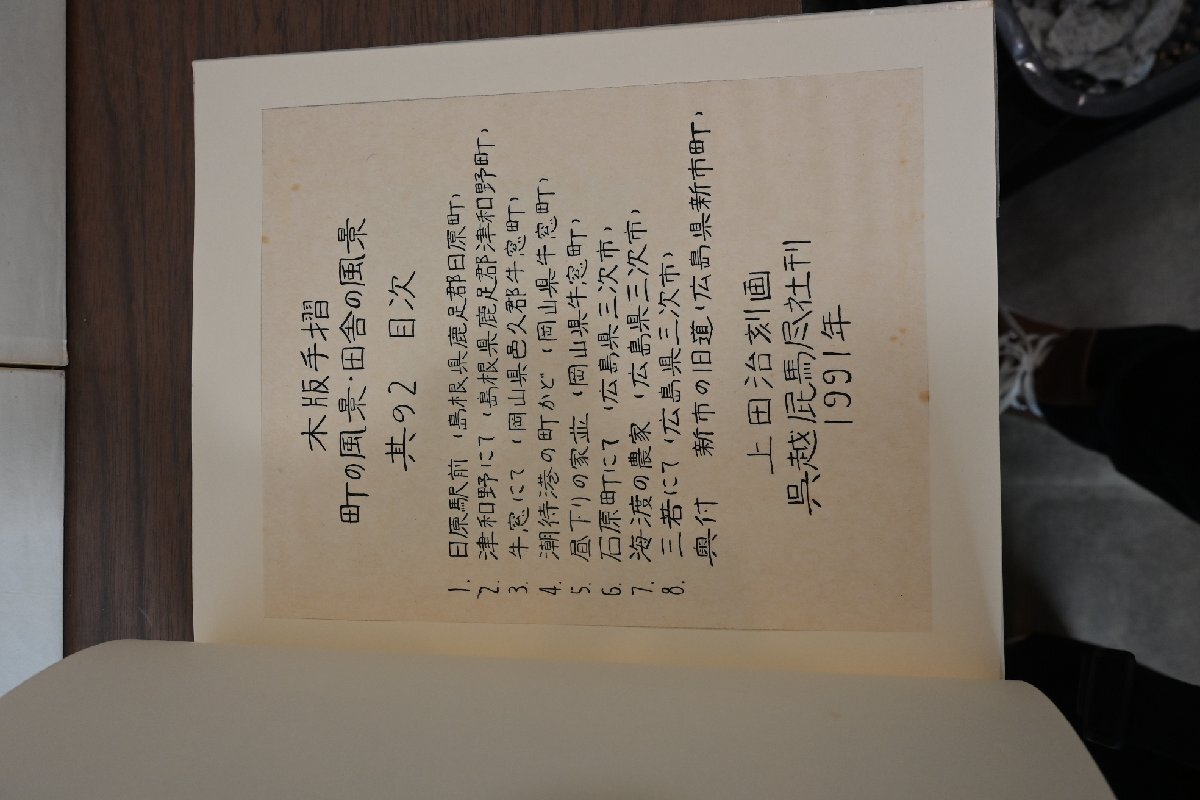 木版手摺
町の風景・田舎の風景
其の2 目次
1. 日原駅前 (島根県鹿足郡日原町)
2. 津和野にて (島根県鹿足郡津和野町)
3. 牛窓にて (岡山県邑久郡牛窓町)
4. 潮待港の町かど (岡山県牛窓町)
5. 昼下りの家並 (岡山県牛窓町)
6. 石原町にて (広島県三次市)
7. 海渡の農家 (広島県三次市)
8. 三若にて (広島県三次市)
奥付 新市の旧道 (広島県新市町)
上田治刻画
呉越屁馬尽社刊
1991年